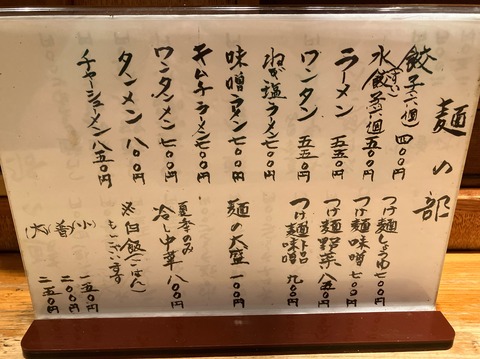 麺の部
餃子六個 四〇〇円
水餃子六個 五〇〇円
(すい)
ラーメン 五五〇円
ワンタン 五五〇円
ねぎ塩ラーメン 七〇〇円
味噌ラーメン 七〇〇円
キムチラーメン 七〇〇円
ワンタンメン 七〇〇円
タンメン 八〇〇円
チャーシュウメン 八五〇円
つけ麺しょうゆ 七〇〇円
つけ麺味噌 七〇〇円
つけ麺野菜 八五〇円
つけ麺味噌 九〇〇円
麺の大盛 一〇〇円
夏季のみ
冷し中華 八〇〇円
※白飯(ごはん)
もございます
(小) 一五〇円
(普) 二〇〇円
(大) 二五〇円